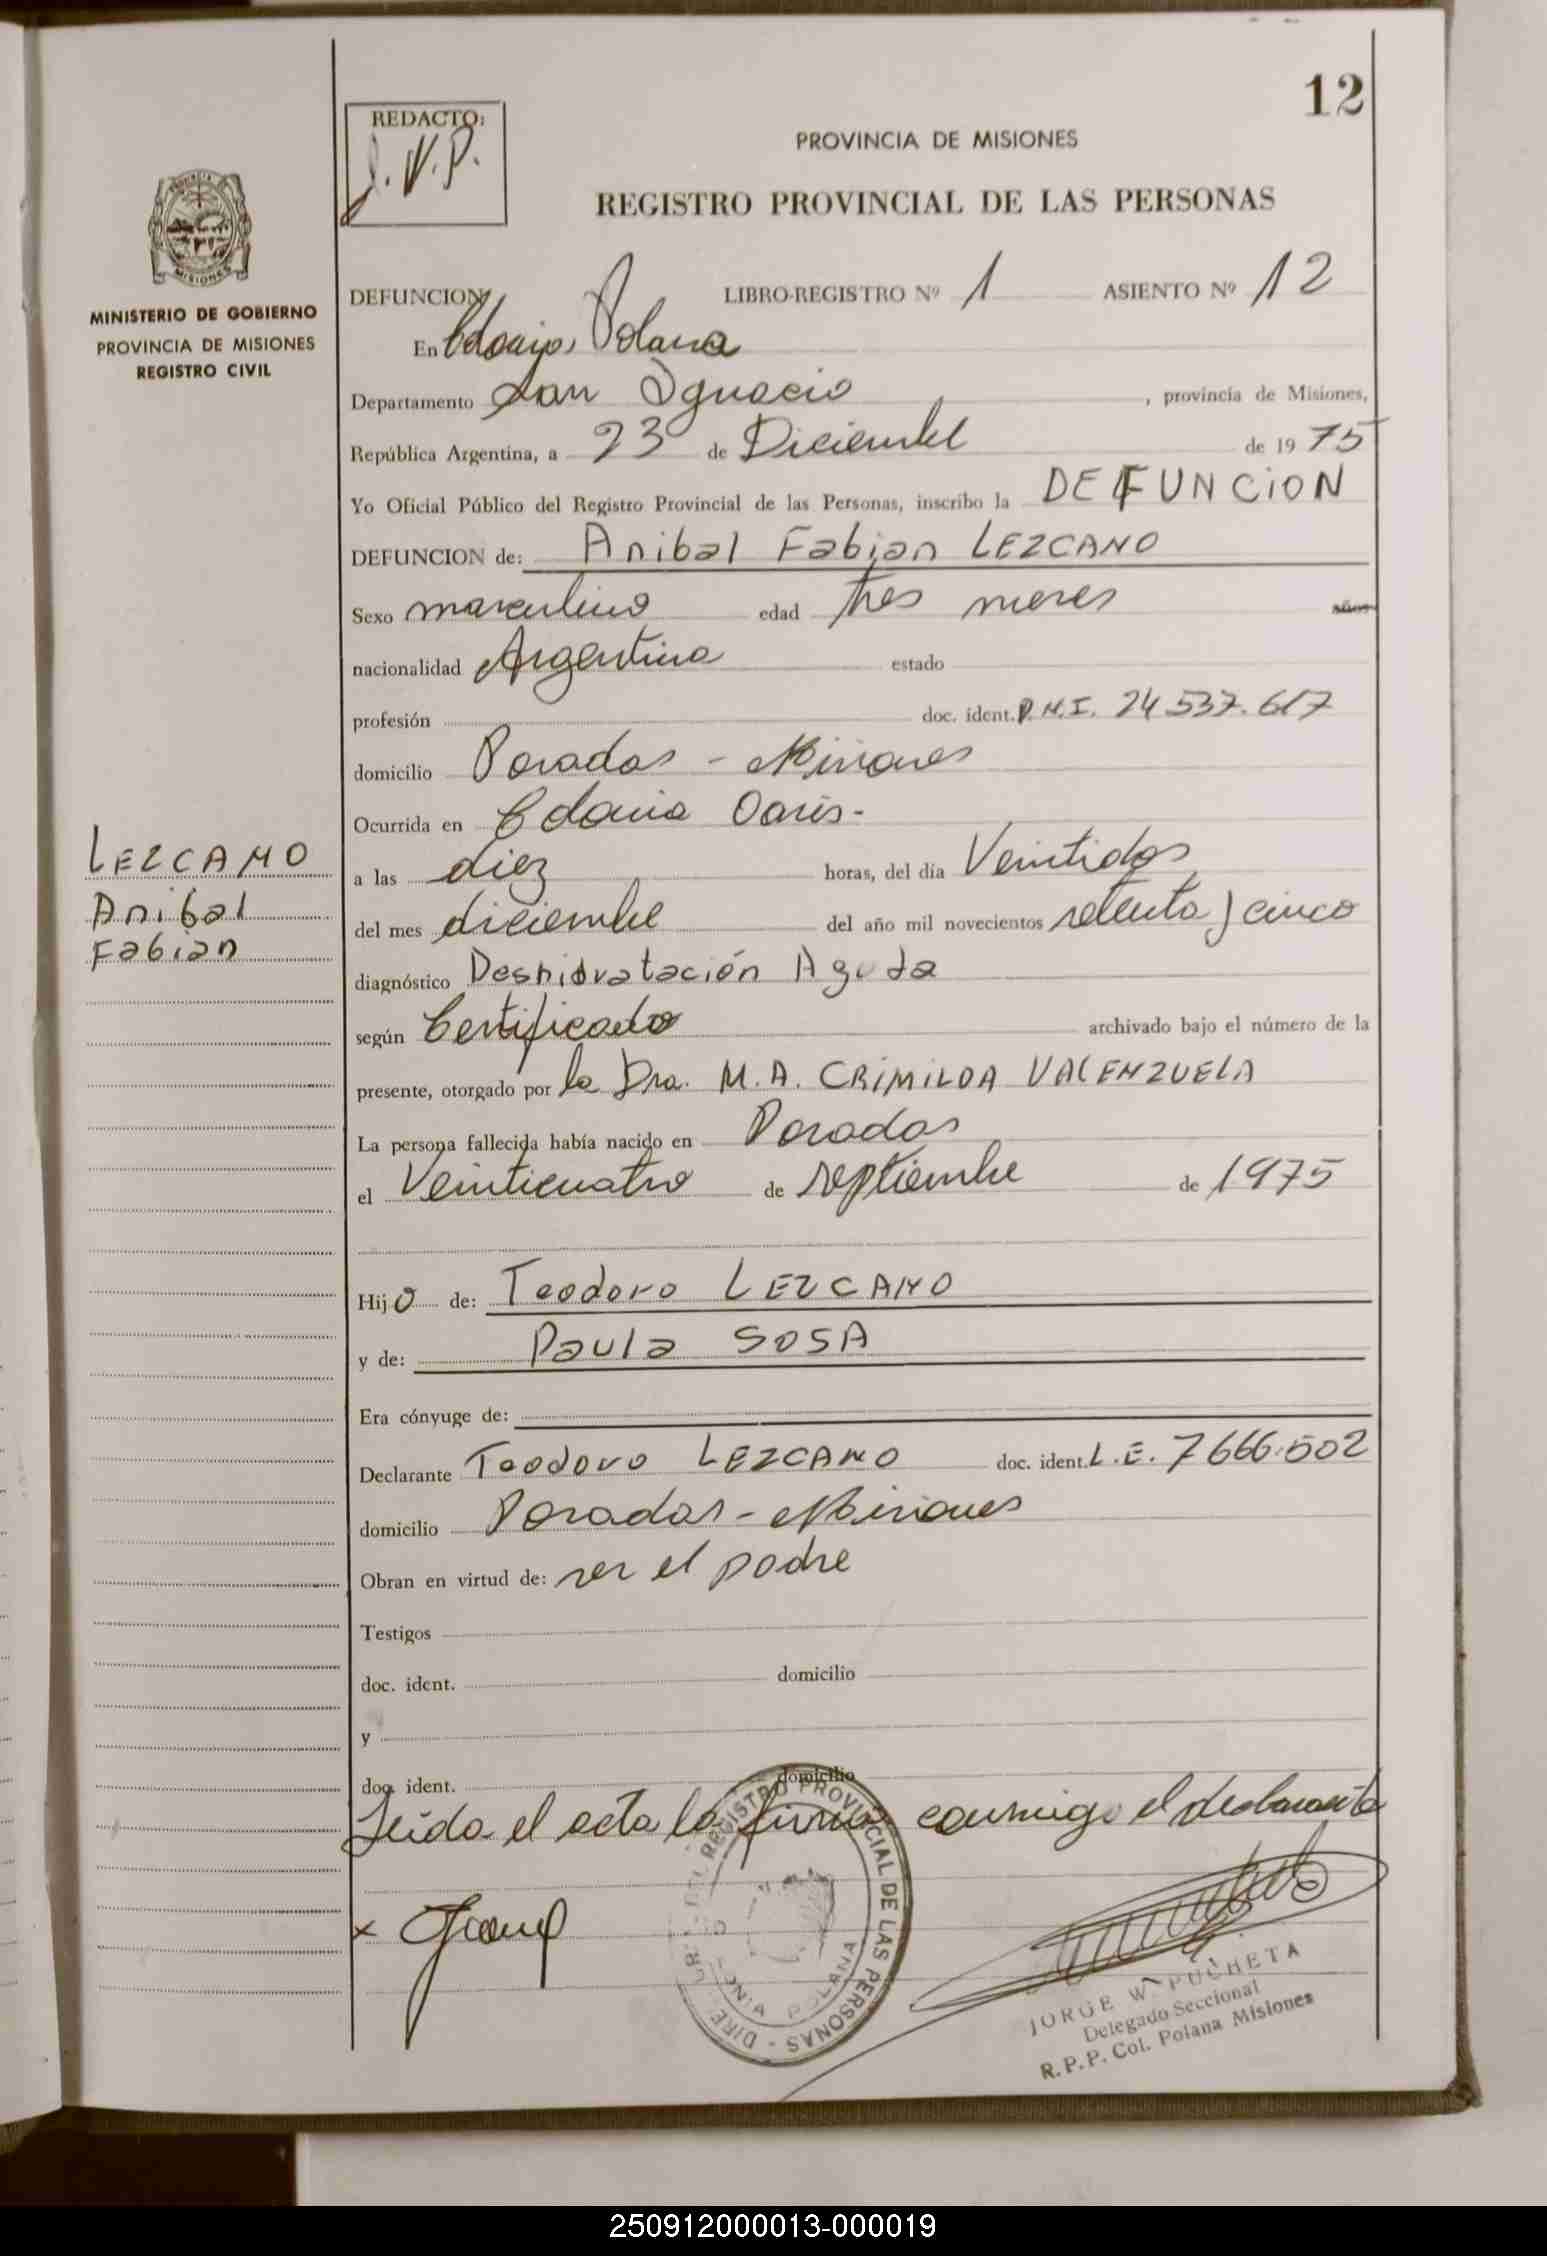 12
REDACTO:
J.V.P.
PROVINCIA DE MISIONES
REGISTRO PROVINCIAL DE LAS PERSONAS
MISIONES
MINISTERIO DE GOBIERNO
PROVINCIA DE MISIONES
REGISTRO CIVIL
DEFUNCION LIBRO-REGISTRO Nº 1 ASIENTO Nº 12
En Colonia Polana
Departamento San Ignacio , provincia de Misiones,
República Argentina, a 23 de Diciembre de 1975
Yo Oficial Público del Registro Provincial de las Personas, inscribo la DEFUNCION
DEFUNCION de: Anibal Fabian LEZCANO
Sexo masculino edad tres meses años
nacionalidad Argentina estado
profesión doc. ident. D.N.I. 24537.617
domicilio Posadas - Misiones
Ocurrida en Colonia Oasis-
a las diez horas, del día Veintidos
del mes diciembre del año mil novecientos setenta y cinco
LEZCANO
Anibal
Fabian
diagnóstico Deshidratación Aguda
según Certificado archivado bajo el número de la
presente, otorgado por la Dra. M.A. CRIMILDA VALENZUELA
La persona fallecida había nacido en Posadas
el Veinticuatro de septiembre de 1975
Hijo de: Teodoro LEZCANO
y de: Paula SOSA
Era cónyuge de:
Declarante Teodoro LEZCANO doc. ident. L.E. 7666.502
domicilio Posadas - Misiones
Obran en virtud de: ser el padre
Testigos
doc. ident. domicilio
y
doc. ident. domicilio
Leida el acta la firma conmigo el declarante
REGISTRO PROVINCIAL DE LAS PERSONAS - DIRE
COLONIA POLANA
x
JORGE W. PUCHETA
Delegado Seccional
R.P.P. Col. Polana Misiones
250912000013-000019